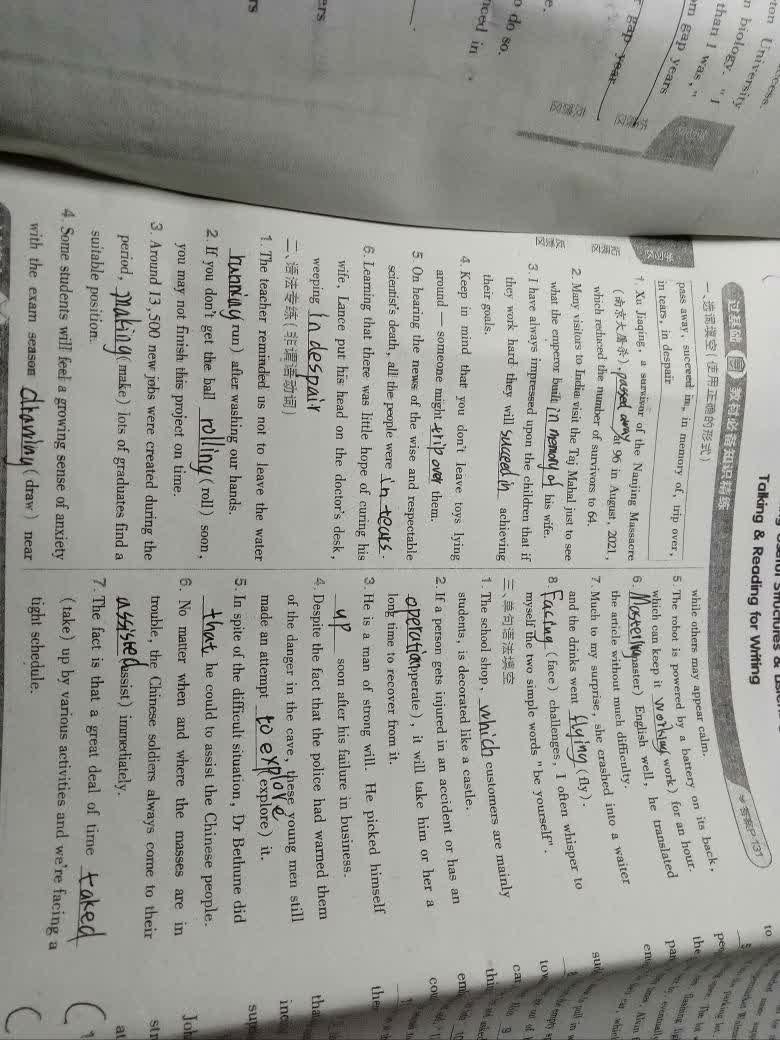 ton University
n biology. "I
than I was,"
m gap years
gap year
o do so.
nced in
Talking & Reading for Writing
过基础 教材必备知识精练
答案P131
一、选词填空(使用正确的形式)
pass away, succeed in, in memory of, trip over,
in tears, in despair
1. Xu Jiaqing, a survivor of the Nanjing Massacre
(南京大屠杀), passed away at 96 in August, 2021,
which reduced the number of survivors to 64.
2. Many visitors to India visit the Taj Mahal just to see
what the emperor built in memory of his wife.
3. I have always impressed upon the children that if
they work hard they will succeed in achieving
their goals.
4. Keep in mind that you don't leave toys lying
around—someone might trip over them.
5. On hearing the news of the wise and respectable
scientist's death, all the people were in tears.
6. Learning that there was little hope of curing his
wife, Lance put his head on the doctor's desk,
weeping in despair
二、语法专练(非谓语动词)
1. The teacher reminded us not to leave the water
running run) after washing our hands.
2. If you don't get the ball rolling (roll) soon,
you may not finish this project on time.
3. Around 13,500 new jobs were created during the
period, making (make) lots of graduates find a
suitable position.
4. Some students will feel a growing sense of anxiety
with the exam season drawing (draw) near
while others may appear calm.
5. The robot is powered by a battery on its back,
which can keep it working work) for an hour.
6. master) English well, he translated
the article without much difficulty.
7. Much to my surprise, she crashed into a waiter
and the drinks went flying (fly).
8. Facing (face) challenges, I often whisper to
myself the two simple words "be yourself".
三、单句语法填空
1. The school shop, which customers are mainly
students, is decorated like a castle.
2. If a person gets injured in an accident or has an
operation operate), it will take him or her a
long time to recover from it.
3. He is a man of strong will. He picked himself
up soon after his failure in business.
4. Despite the fact that the police had warned them
of the danger in the cave, these young men still
made an attempt to explore (explore) it.
5. In spite of the difficult situation, Dr Bethune did
that he could to assist the Chinese people.
6. No matter when and where the masses are in
trouble, the Chinese soldiers always come to their
assisted assist) immediately.
7. The fact is that a great deal of time taked
(take) up by various activities and we're facing a
tight schedule.